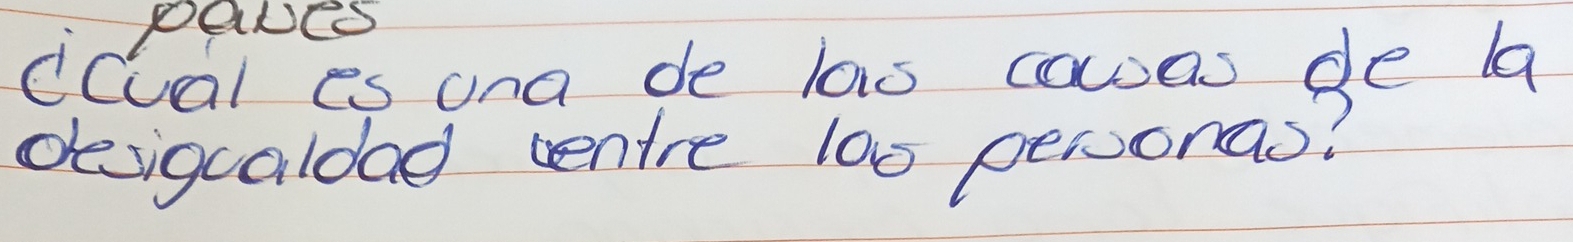 paises
¿Cual es una de las causas de la
desigualdad entre las personas?